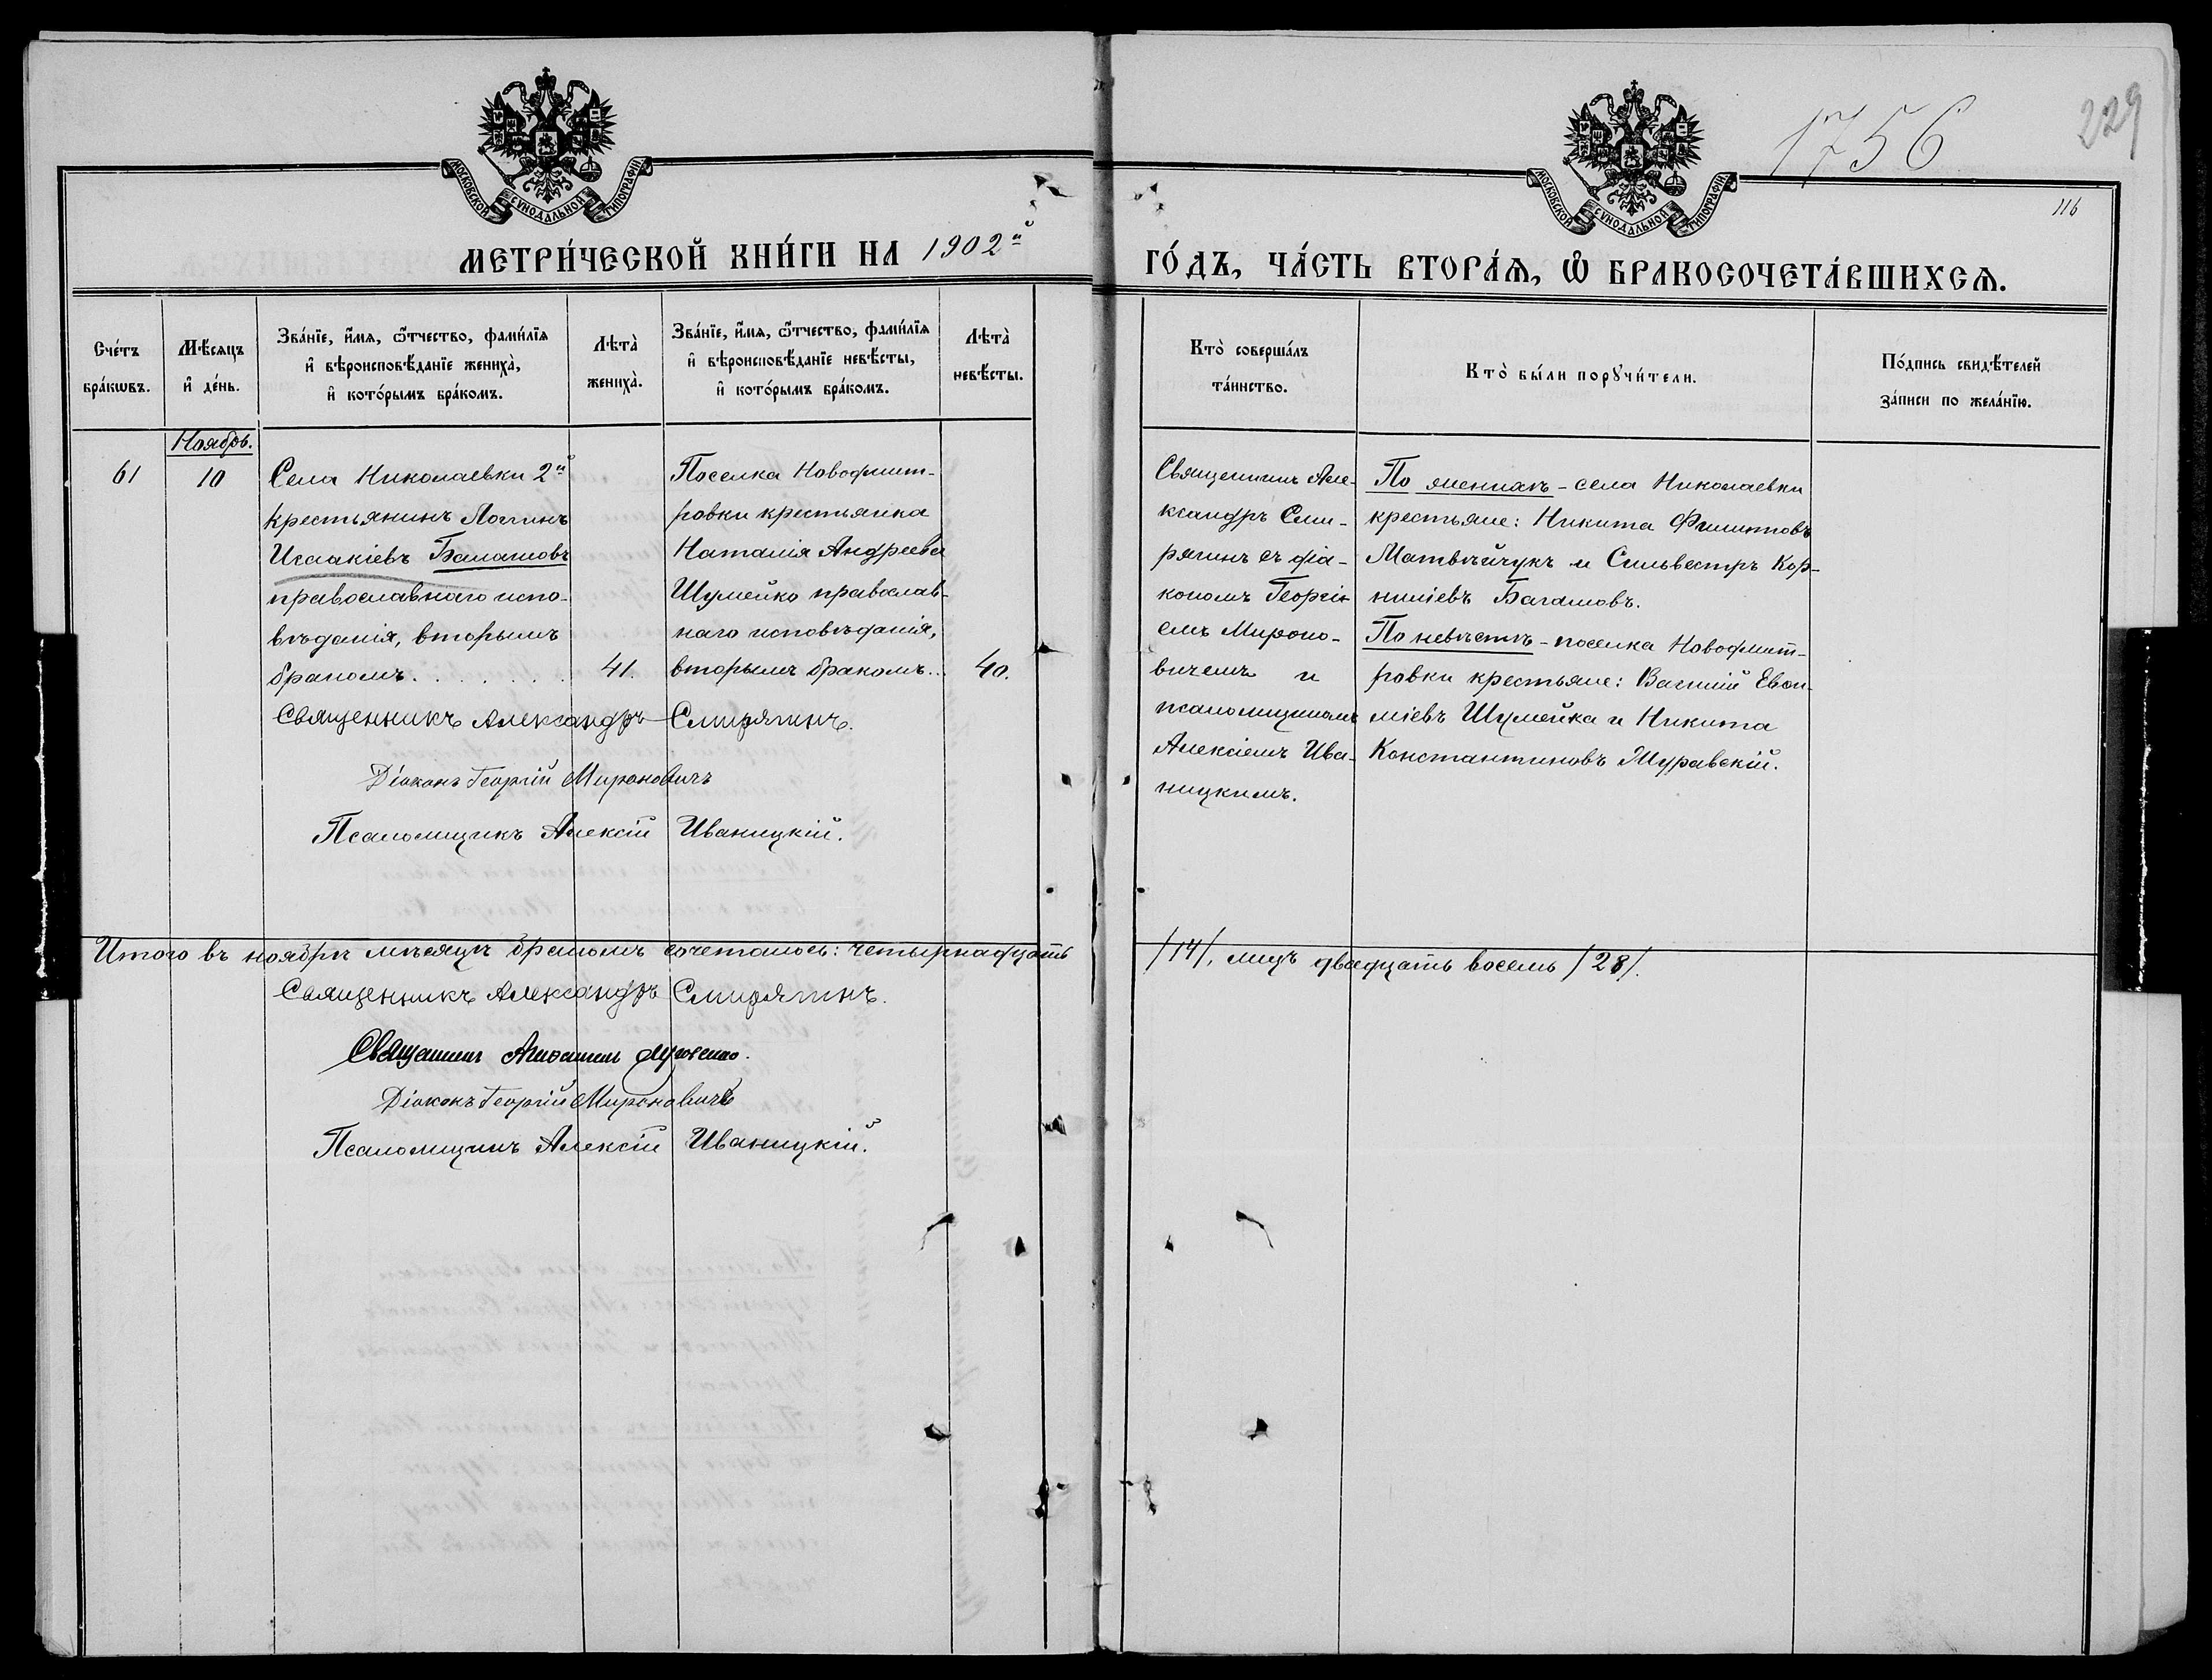 1756
229
116
МОСКОВСКОЙ СѴНОДАЛЬНОЙ ТИПОГРАФІИ
МОСКОВСКОЙ СѴНОДАЛЬНОЙ ТИПОГРАФІИ
МЕТРИ́ЧЕСКОЙ КНИ́ГИ НА 1902й
ГО́ДЪ, ЧА́СТЬ ВТОРА́Ѧ, Ѽ БРАКОСОЧЕТА́ВШИХСѦ.
Сче́тъ
бра́кѡвъ.
Мѣ́сяцъ
и҆ де́нь.
Зва́нїе, и҆́мя, ѻ҆́тчество, фами́лїя
и҆ вѣроисповѣ́данїе жениха̀,
и҆ кото́рымъ бра́комъ.
Лѣта̀
жениха̀.
Зва́нїе, и҆́мя, ѻ҆́тчество, фами́лїя
и҆ вѣроисповѣ́данїе невѣ́сты,
и҆ кото́рымъ бра́комъ.
Лѣта̀
невѣ́сты.
Кто̀ соверша́лъ
та́инство.
Кто̀ бы́ли порꙋчи́тели.
По́дпись свидѣ́телей
за́писи по жела́нїю.
Ноябрь.
61
10
Села Николаевки 2й
крестьянинъ Логинъ
Исаакіевъ Балашовъ
православнаго испо-
вѣданія, вторымъ
бракомъ. . . . . . .
41.
Поселка Новодмит-
ровки крестьянка
Наталія Андреева
Шумейко православ-
наго исповѣданія,
вторымъ бракомъ..
40.
Священникъ Але-
ксандръ Сми-
рягинъ съ діа-
кономъ Георгі-
емъ Мироно-
вичемъ и
псаломщикомъ
Алексіемъ Ива-
ницкимъ.
По женихѣ - села Николаевки
крестьяне: Никита Филиповъ
Матвѣйчукъ и Сильвестръ Кор-
ниліевъ Балашовъ.
По невѣстѣ - поселка Новодмит-
ровки крестьяне: Василій Евѳи-
міевъ Шумейка и Никита
Константиновъ Журавскій.
Священникъ Александръ Смирягинъ.
Діаконъ Георгій Мироновичъ
Псаломщикъ Алексій Иваницкій.
Итого въ ноябрѣ мѣсяцѣ бракомъ сочеталось: четырнадцать /14/, лицъ двадцать восемь /28/.
Священникъ Александръ Смирягинъ.
Священникъ
Діаконъ Георгій Мироновичъ
Псаломщикъ Алексій Иваницкій.